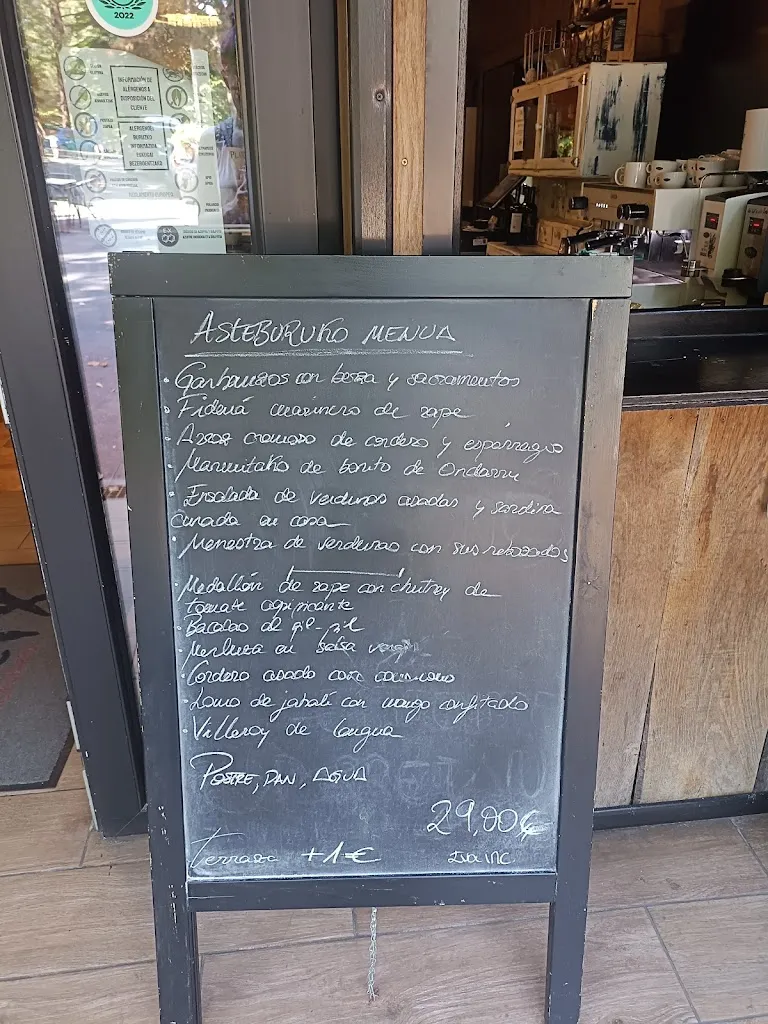 2022
INFORMACIÓN DE
ALÉRGENOS A
DISPOSICIÓN DEL
CLIENTE
ASTEBURUKO MENUA
Garbanzos con berza y sacramentos
Fideuá marinera de rape
Arroz cremoso de cordero y esparragos
Marmitako de bonito de Ondarru
Ensalada de verduras asadas y sardina
curada en casa
Menestra de verduras con sus rebozados
Medallón de rape con chutney de
tomate agripicante
Bacalao al pil-pil
Merluza en salsa
Cordero asado con
Lomo de jabalí con mango confitado
Villeroy de lengua
POSTRE, PAN, AGUA
29,00€
Terraza +1€
IVA INC